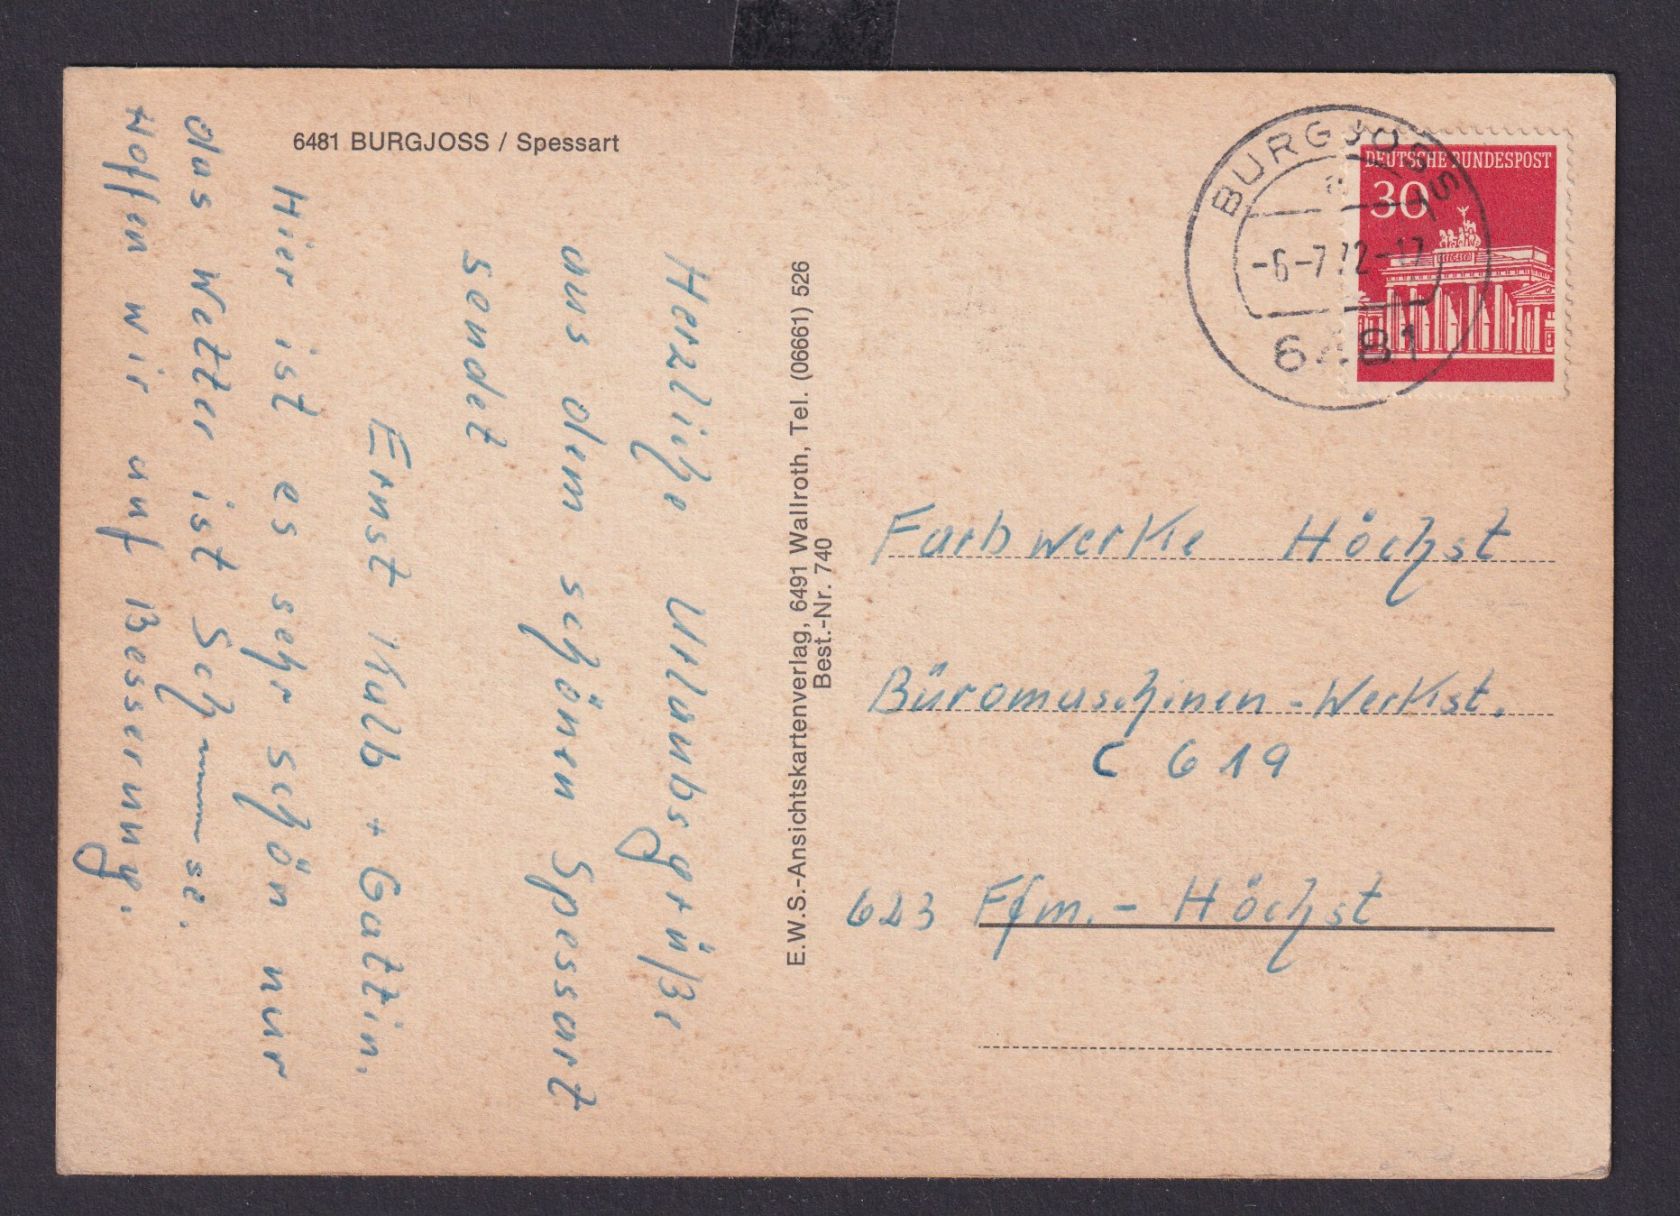 6481 BURGJOSS / Spessart
Herzliche Urlaubsgrüße
aus dem schönen Spessart
sendet
Ernst Kulb + Gattin.
Hier ist es sehr schön nur
das Wetter ist Sch——se.
Hoffen wir auf Besserung.
E.W.S.-Ansichtskartenverlag, 6491 Wallroth, Tel. (06661) 526
Best.-Nr. 740
BURGJOSS
a
-6-7.72-17
6481
DEUTSCHE BUNDESPOST
30
Farbwerke Höchst
Büromaschinen-Werkst.
C 619
623 Ffm.- Höchst